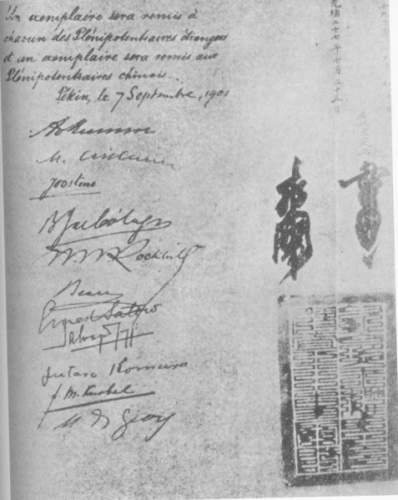 Un exemplaire sera remis à
chacun des Plénipotentiaires étrangers
et un exemplaire sera remis aux
Plénipotentiaires chinois.
Pékin, le 7 Septembre, 1901
A. v. Mumm
M. Czikann
Joostens
B. J. de Cólogan
W. W. Rockhill
Beau
Ernest Satow
Salvago Raggi
Jutaro Komura
F. M. Knobel
M. de Giers
光緒二十七年七月二十五日